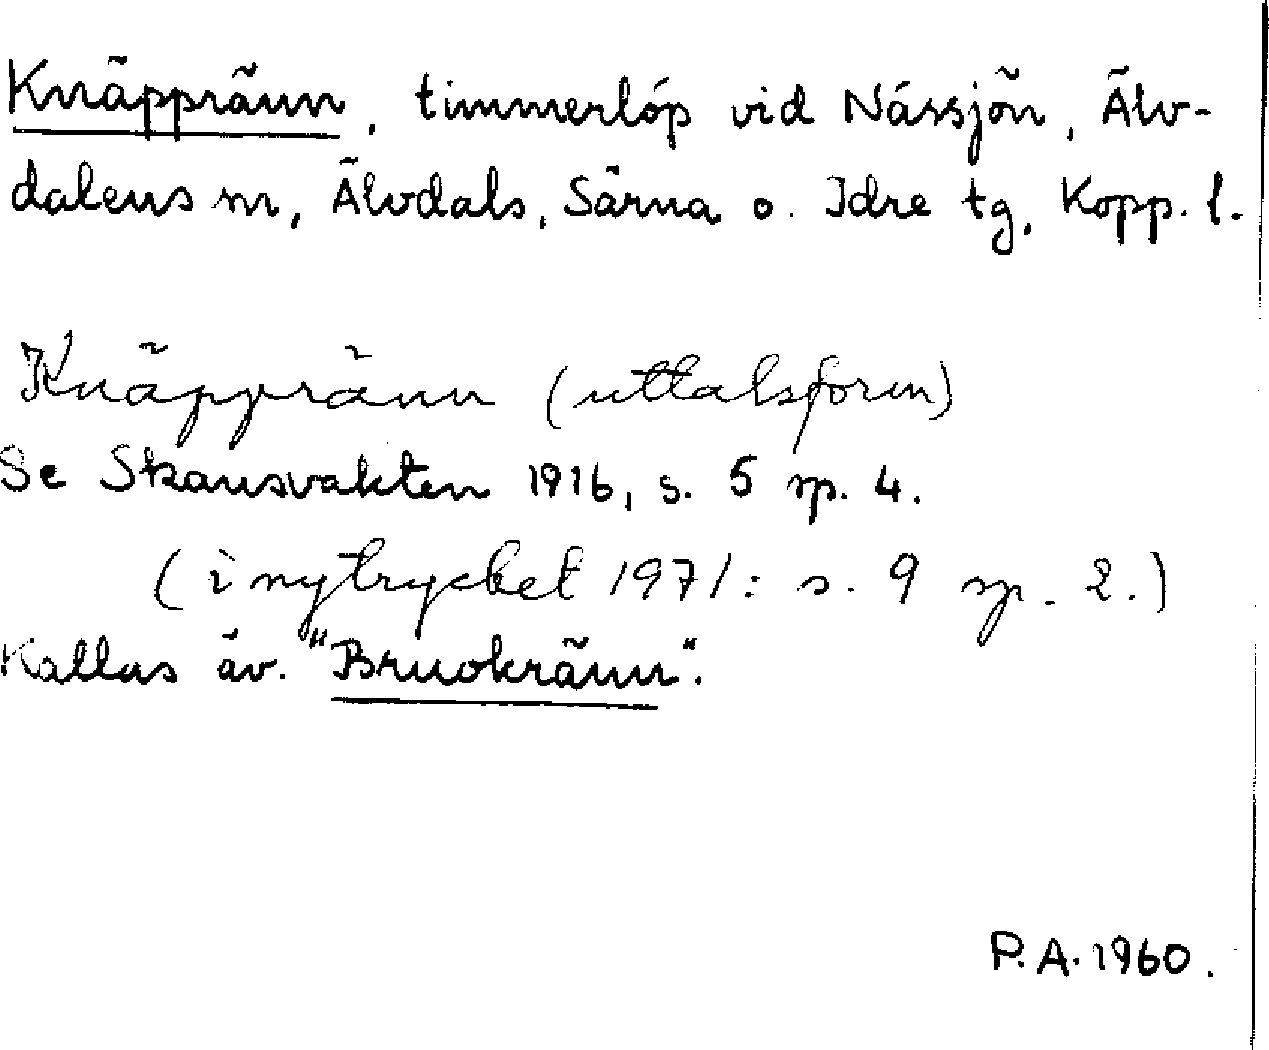 Knäppränn, timmerlöp vid Nässjön, Älv-
dalens sn, Älvdals, Särna o. Idre tg, Kopp. l.
Knäppränn (uttalsform)
Se Skansvakten 1916, s. 5 sp. 4.
(i nytrycket 1971: s. 9 sp. 2.)
Kallas äv. "Bruokränn".
P.A. 1960.